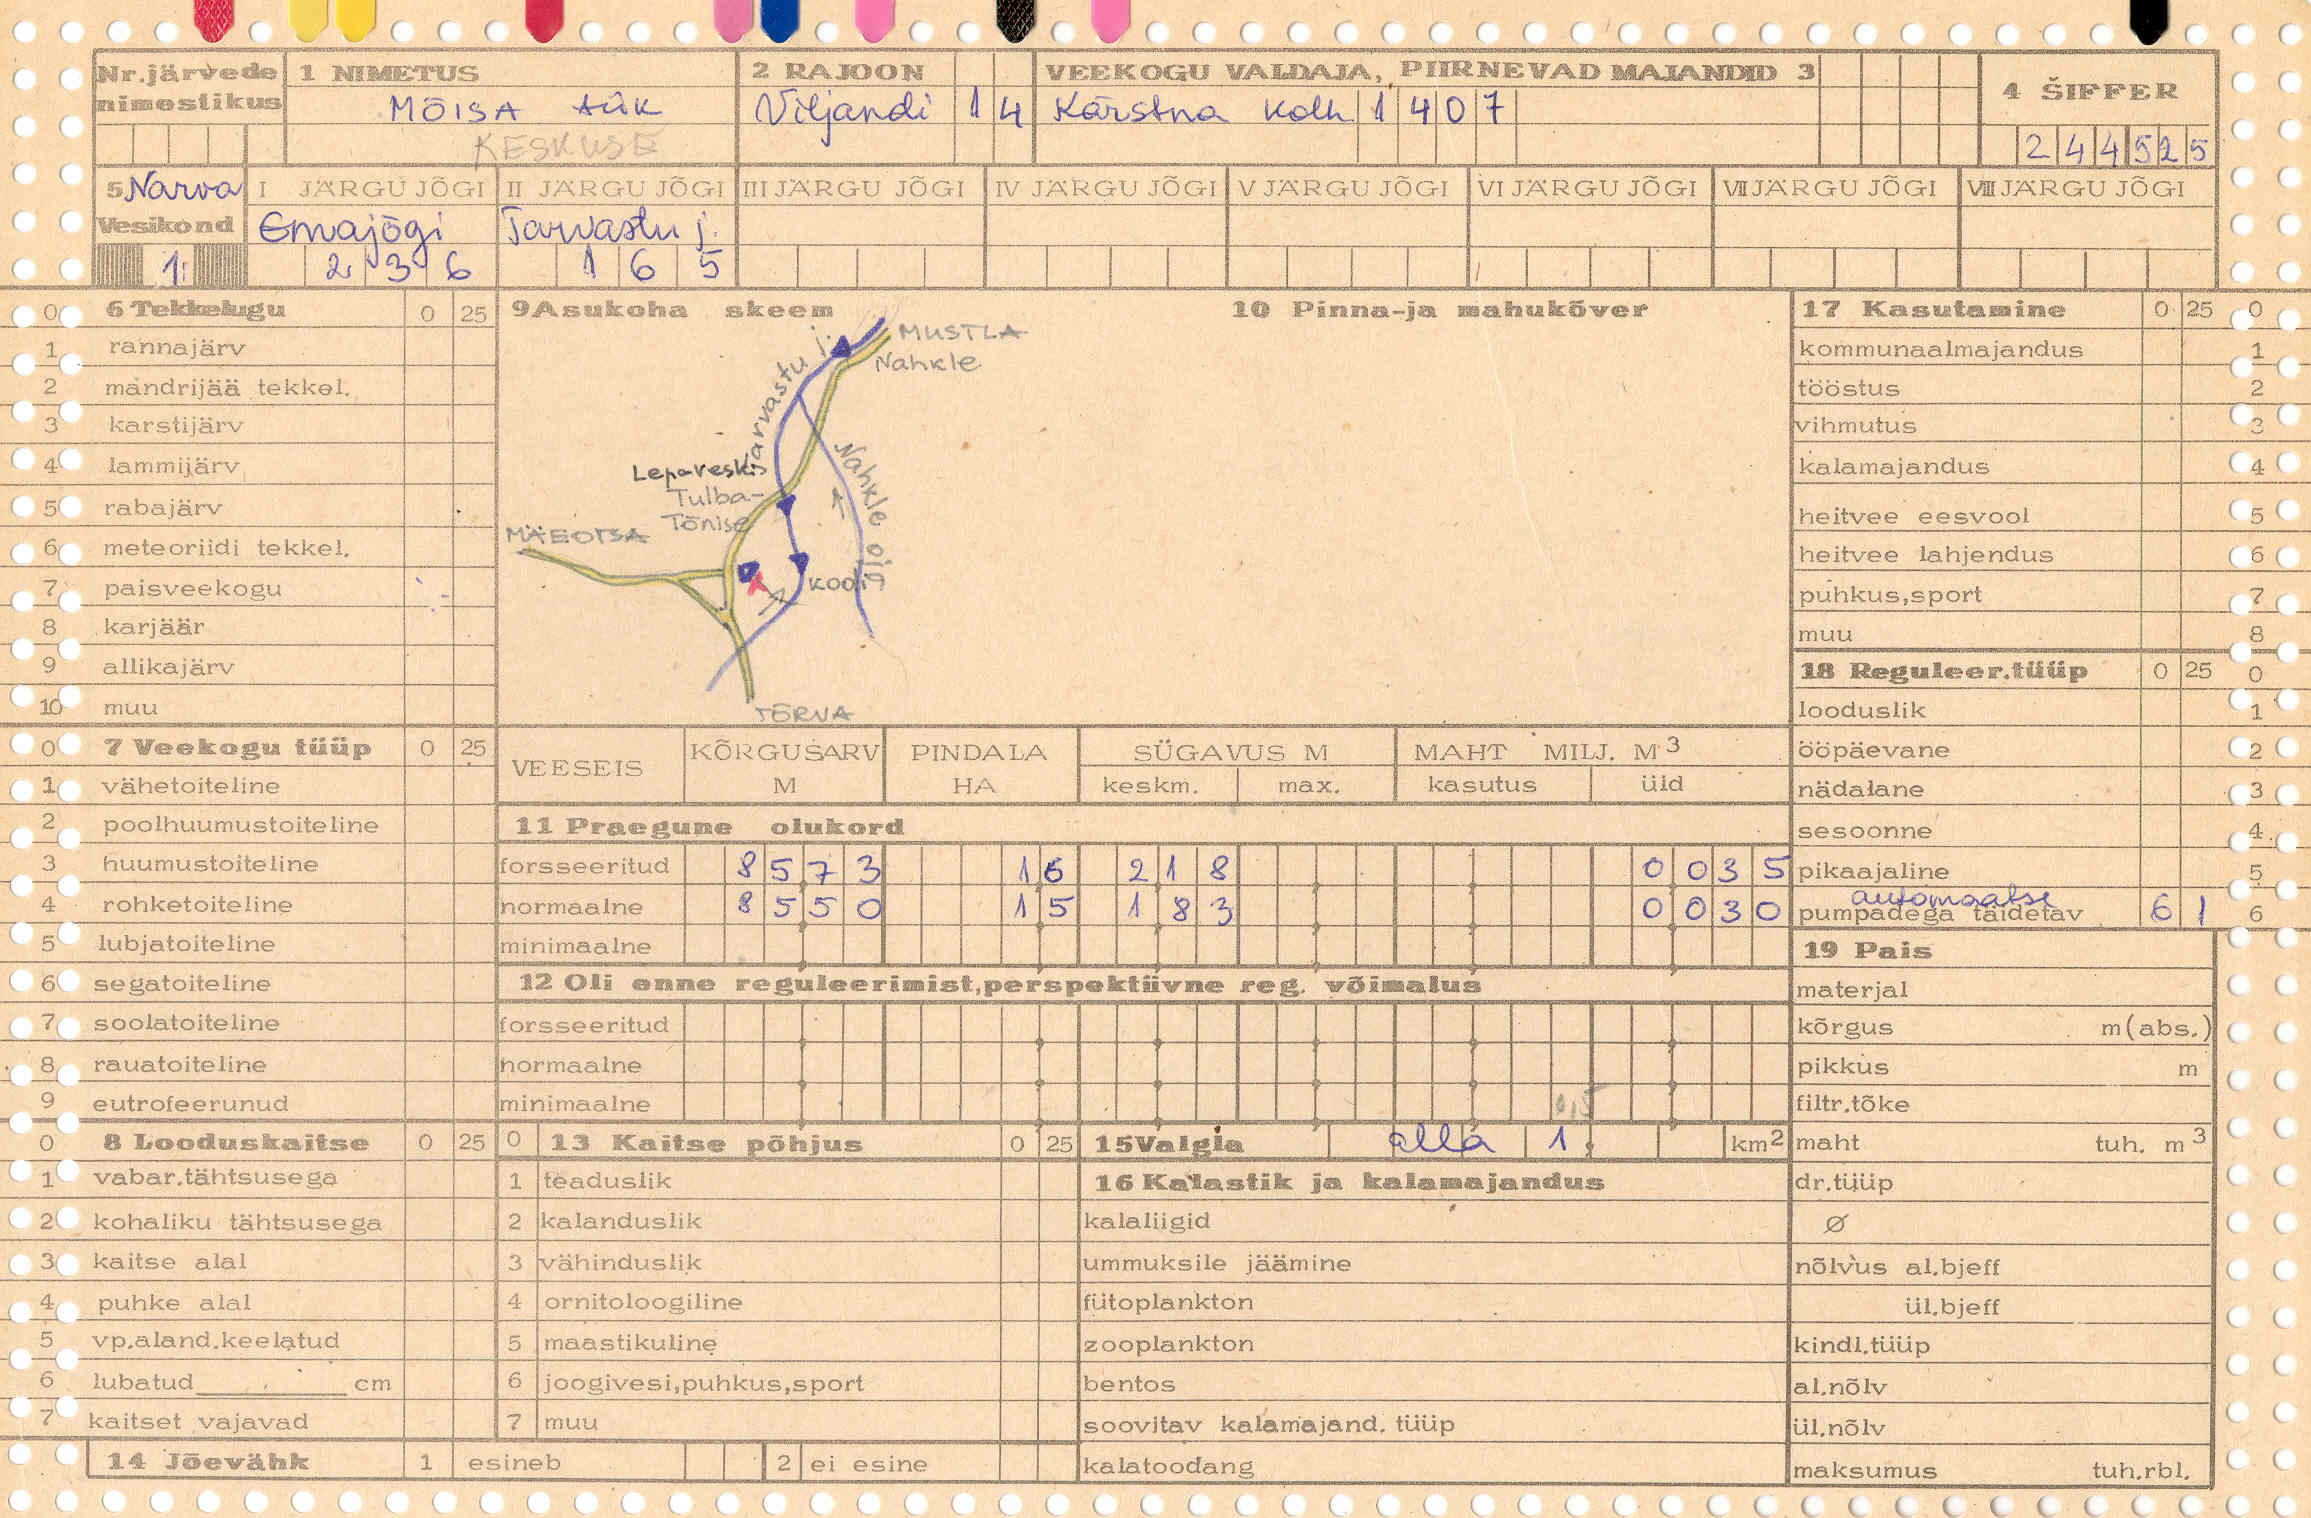 Nr.järvede nimestikus
1 NIMETUS
MÕISA AÜK
KESKUSE
2 RAJOON
Viljandi 1 4
VEEKOGU VALDAJA, PIIRNEVAD MAJANDID 3
Kärstna kolh 1 4 0 7
4 ŠIFFER
2 4 4 5 2 5
5 Narva
Vesikond
1
I JÄRGU JÕGI
Emajõgi
2 3 6
II JÄRGU JÕGI
Tarvastu j.
1 6 5
III JÄRGU JÕGI
IV JÄRGU JÕGI
V JÄRGU JÕGI
VI JÄRGU JÕGI
VII JÄRGU JÕGI
VIII JÄRGU JÕGI
0 6 Tekkelugu 0 25
1 rannajärv
2 mandrijää tekkel.
3 karstijärv
4 lammijärv
5 rabajärv
6 meteoriidi tekkel.
7 paisveekogu
8 karjäär
9 allikajärv
10 muu
9 Asukoha skeem
MUSTLA
Nahkle
Tarvastu j.
Leparveski
Tulba-
Tõnise
Nahkle oja
MÄEOTSA
Koodi
TÕRVA
10 Pinna-ja mahukõver
17 Kasutamine 0 25 0
kommunaalmajandus 1
tööstus 2
vihmutus 3
kalamajandus 4
heitvee eesvool 5
heitvee lahjendus 6
puhkus,sport 7
muu 8
18 Reguleer.tüüp 0 25 0
looduslik 1
ööpäevane 2
nädalane 3
sesoonne 4
pikaajaline 5
automaatse
pumpadega täidetav 6 1 6
0 7 Veekogu tüüp 0 25
1 vähetoiteline
2 poolhuumustoiteline
3 huumustoiteline
4 rohketoiteline
5 lubjatoiteline
6 segatoiteline
7 soolatoiteline
8 rauatoiteline
9 eutrofeerunud
VEESEIS
KÕRGUSARV M
PINDALA HA
SÜGAVUS M
keskm. max.
MAHT MILJ. M3
kasutus üld
11 Praegune olukord
forsseeritud 8 5 7 3 1 6 2 1 8 0 0 3 5
normaalne 8 5 5 0 1 5 1 8 3 0 0 3 0
minimaalne
12 Oli enne reguleerimist,perspektiivne reg. võimalus
forsseeritud
normaalne
minimaalne
0,5
19 Pais
materjal
kõrgus m(abs.)
pikkus m
filtr.tõke
maht tuh. m3
dr.tüüp
Ø
nõlvus al.bjeff
ül.bjeff
kindl.tüüp
al.nõlv
ül.nõlv
maksumus tuh.rbl.
0 8 Looduskaitse 0 25
1 vabar.tähtsusega
2 kohaliku tähtsusega
3 kaitse alal
4 puhke alal
5 vp.aland.keelatud
6 lubatud cm
7 kaitset vajavad
0 13 Kaitse põhjus 0 25
1 teaduslik
2 kalanduslik
3 vähinduslik
4 ornitoloogiline
5 maastikuline
6 joogivesi,puhkus,sport
7 muu
15 Valgla alla 1 km2
16 Kalastik ja kalamajandus
kalaliigid
ummuksile jäämine
fütoplankton
zooplankton
bentos
soovitav kalamajand. tüüp
kalatoodang
14 Jõevähk 1 esineb 2 ei esine